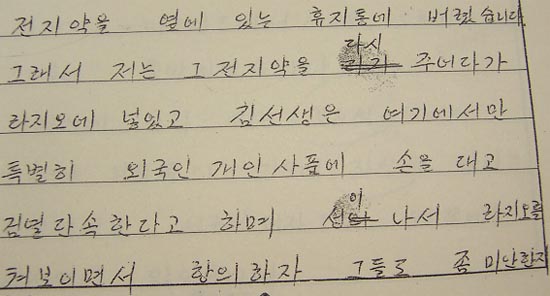 전지약을 옆에 있는 휴지통에 버렸습니다
그래서 저는 그 전지약을 다시 주어다가
라지오에 넣었고 김선생은 여기에서만
특별히 외국인 개인사품에 손을 대고
검열단속한다고 하며 성이 나서 라지오를
켜보이면서 항의하자 그들도 좀 미안한지